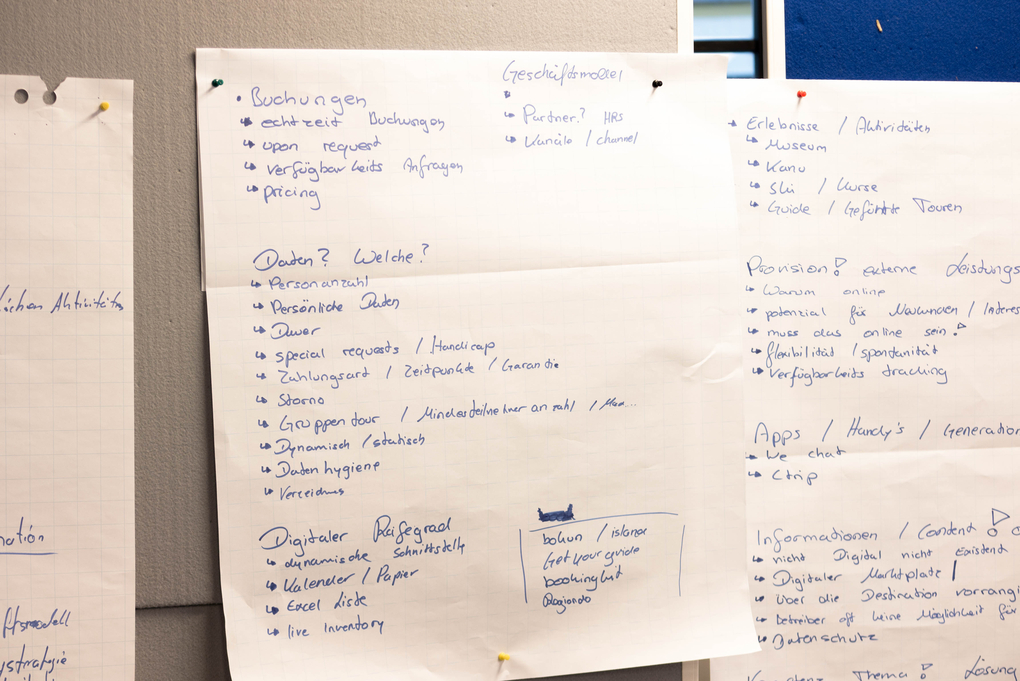 lichen Aktivitäten
ftsmodell
• Buchungen
↳ echtzeit Buchungen
↳ upon request
↳ verfügbarkeits Anfragen
↳ pricing
Geschäftsmodel
↳ Partner? HRS
↳ Kanäle / channel
Daten? Welche?
↳ Personanzahl
↳ Persönliche Daten
↳ Dauer
↳ special requests / Handicap
↳ Zahlungsart / Zeitpunkte / Garantie
↳ Storno
↳ Gruppentour / Mindesteilnehmer anzahl / Max...
↳ Dynamisch / statisch
↳ Daten hygiene
Digitaler Reifegrad
↳ dynamische Schnittstelle
↳ Kalender / Papier
↳ Excel Liste
↳ live Inventory
bokun / island
Get your guide
bookingkit
Regiondo
• Erlebnisse / Aktivitäten
↳ Museum
↳ Kanu
↳ Ski / Kurse
↳ Guide / Geführte Touren
Provision! externe Leistungs
↳ Warum online
↳ potenzial für / Interes
↳ muss das online sein?
↳ flexibilität / spontanität
↳ Verfügbarkeits tracking
Apps / Handy's / Generation
↳ We chat
↳ Ctrip
Informationen / Content!
↳ nicht Digital nicht Existent
↳ Digitaler Marktplatz!
↳ über die Destination vorrangi
↳ betreiber oft keine Möglichkeit für
↳ Datenschutz
Thema! Lösung